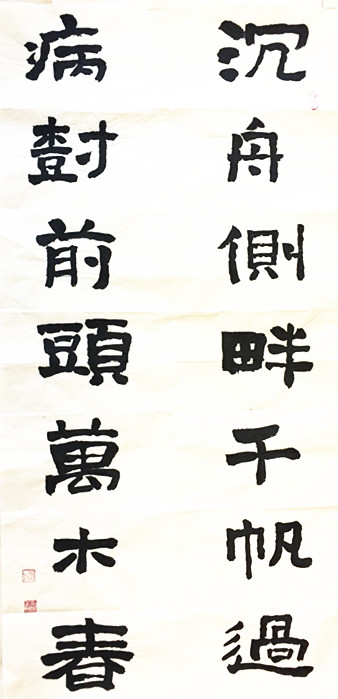 沉舟側畔千帆過
病樹前頭萬木春